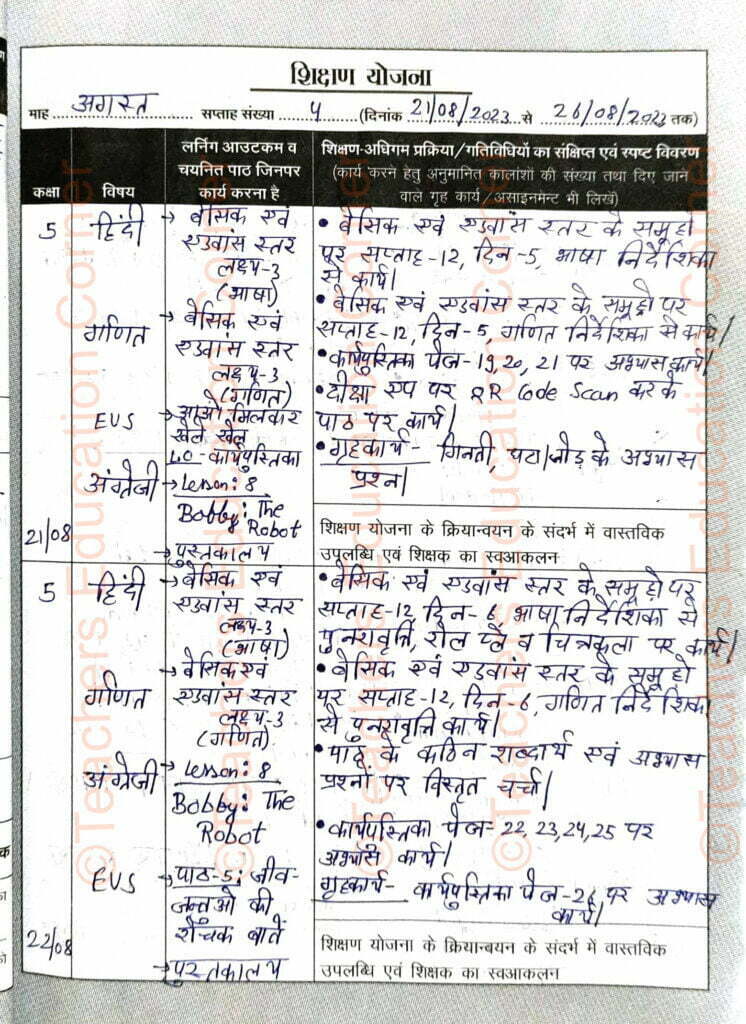 शिक्षण योजना
माह अगस्त सप्ताह संख्या 4 (दिनांक 21/08/2023 से 26/08/2023 तक)
कक्षा
विषय
लर्निंग आउटकम व
चयनित पाठ जिनपर
कार्य करना है
शिक्षण-अधिगम प्रक्रिया/गतिविधियों का संक्षिप्त एवं स्पष्ट विवरण
(कार्य करने हेतु अनुमानित कालांशों की संख्या तथा दिए जाने
वाले गृह कार्य/असाइनमेंट भी लिखें)
5
हिंदी
→ बेसिक एवं
एडवांस स्तर
लक्ष्य-3
(भाषा)
गणित
→ बेसिक एवं
एडवांस स्तर
लक्ष्य-3
(गणित)
EVS
→ आओ मिलकर
खेले खेल
40-कार्यपुस्तिका
अंग्रेजी
→ Lesson: 8
Bobby: The
Robot
21/08
→ पुस्तकालय
• बेसिक एवं एडवांस स्तर के समूहो
पर सप्ताह-12, दिन-5, भाषा निर्देशिका
से कार्य।
• बेसिक एवं एडवांस स्तर के समूहो पर
सप्ताह-12, दिन-5, गणित निर्देशिका से कार्य।
• कार्यपुस्तिका पेज-19, 20, 21 पर अभ्यास कार्य।
• दीक्षा एप पर QR Code Scan करके
पाठ पर कार्य।
• गृहकार्य- गिनती, घटा/जोड़ के अभ्यास
प्रश्न।
शिक्षण योजना के क्रियान्वयन के संदर्भ में वास्तविक
उपलब्धि एवं शिक्षक का स्वआकलन
5
हिंदी
→ बेसिक एवं
एडवांस स्तर
लक्ष्य-3
(भाषा)
गणित
→ बेसिक एवं
एडवांस स्तर
लक्ष्य-3
(गणित)
अंग्रेजी
→ Lesson: 8
Bobby: The
Robot
EVS
→ पाठ-5: जीव-
जन्तुओ की
रोचक बातें
22/08
→ पुस्तकालय
• बेसिक एवं एडवांस स्तर के समूहो पर
सप्ताह-12, दिन-6, भाषा निर्देशिका से
पुनरावृत्ति, रोल प्ले व चित्रकला पर कार्य।
• बेसिक एवं एडवांस स्तर के समूहो
पर सप्ताह-12, दिन-6, गणित निर्देशिका
से पुनरावृत्ति कार्य।
• पाठ के कठिन शब्दार्थ एवं अभ्यास
प्रश्नों पर विस्तृत चर्चा।
• कार्यपुस्तिका पेज- 22, 23, 24, 25 पर
अभ्यास कार्य।
गृहकार्य- कार्यपुस्तिका पेज-26 पर अभ्यास
कार्य।
शिक्षण योजना के क्रियान्बयन के संदर्भ में वास्तविक
उपलब्धि एवं शिक्षक का स्वआकलन
©Teachers Education Corner
©Teachers Education Corner
©Teachers Education Corner
©Teachers Education Corner